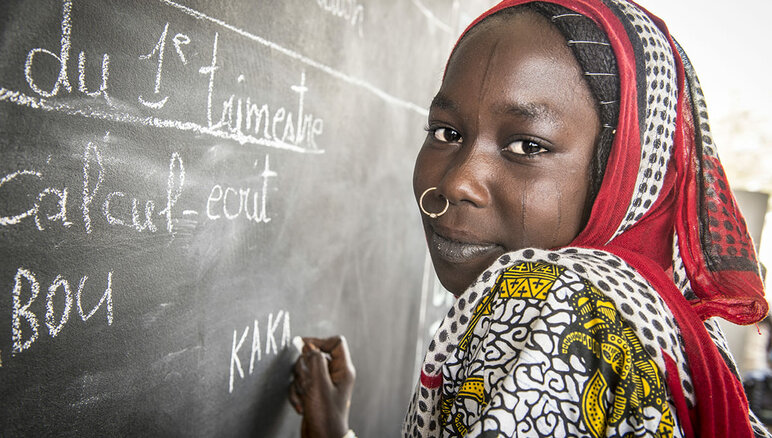 du 1e trimestre
calcul-ecrit
BOU
KAKA